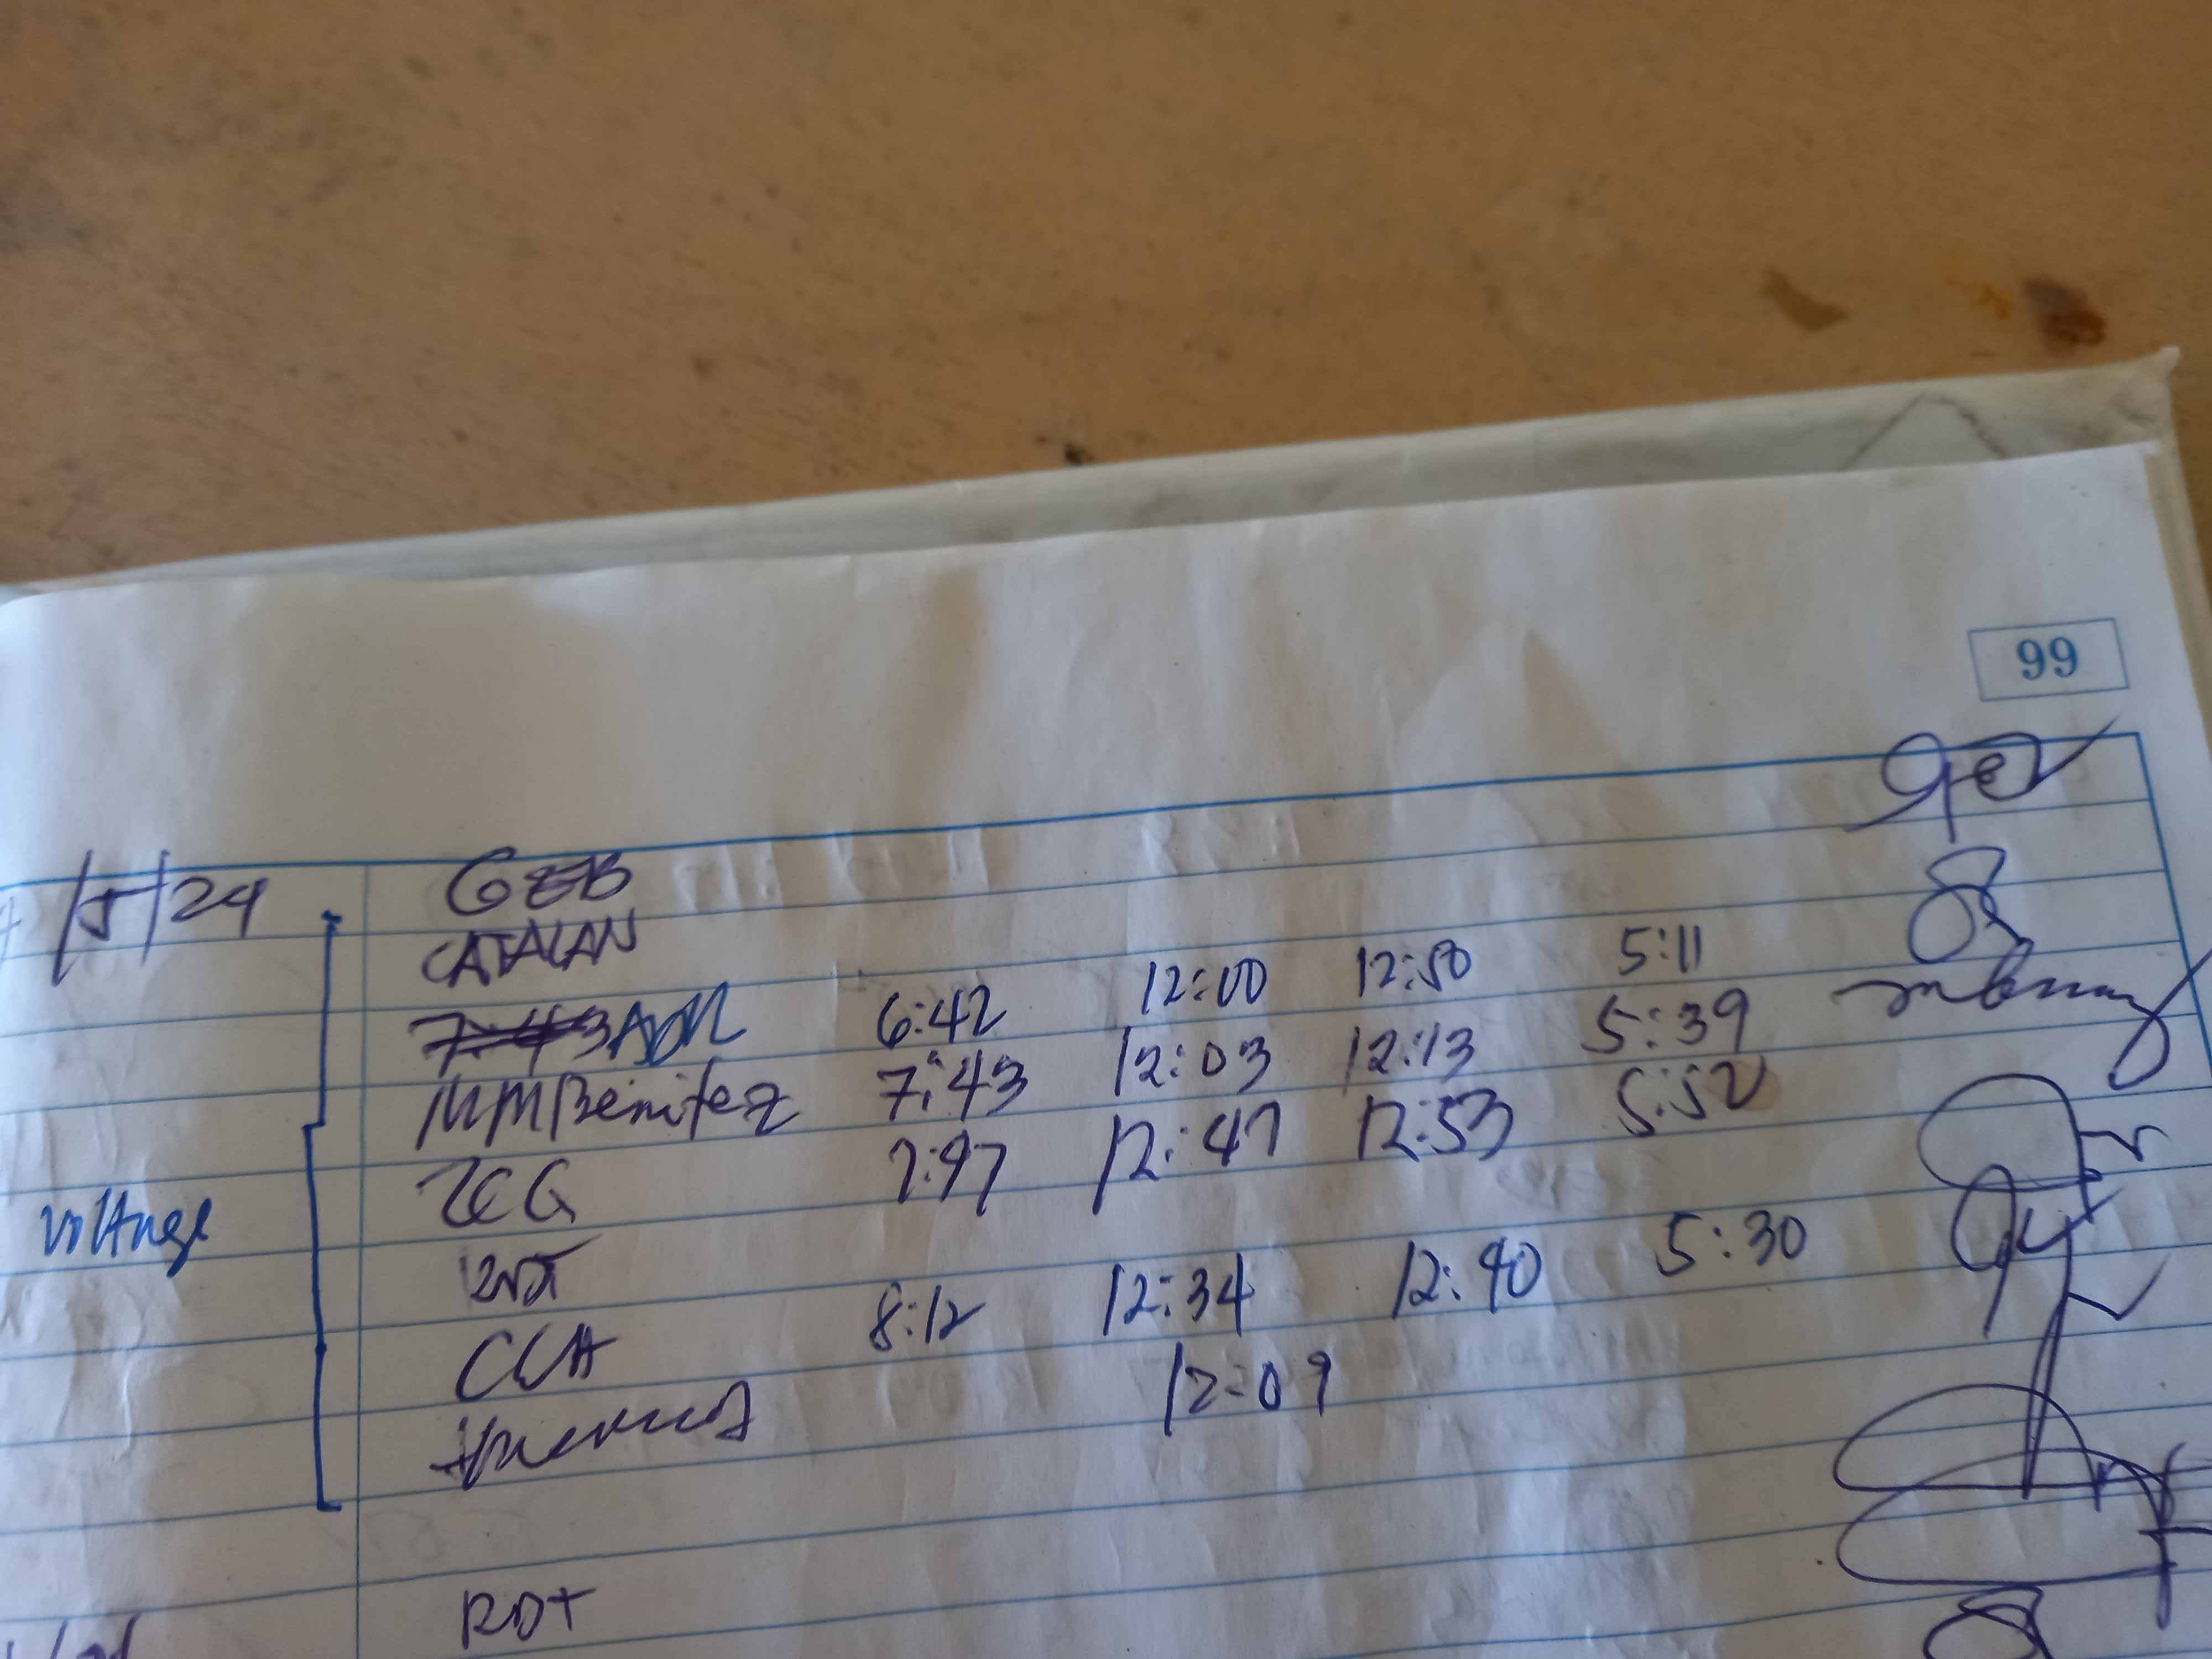 99
/5/24 GEB
CATALAN
7:43 ADR 6:42 12:00 12:50 5:11
MMBenitez 7:43 12:03 12:13 5:39
ZCG 7:47 12:47 12:53 5:52
voltage
RDT
CCA 8:12 12:34 12:40 5:30
12:09
RDT